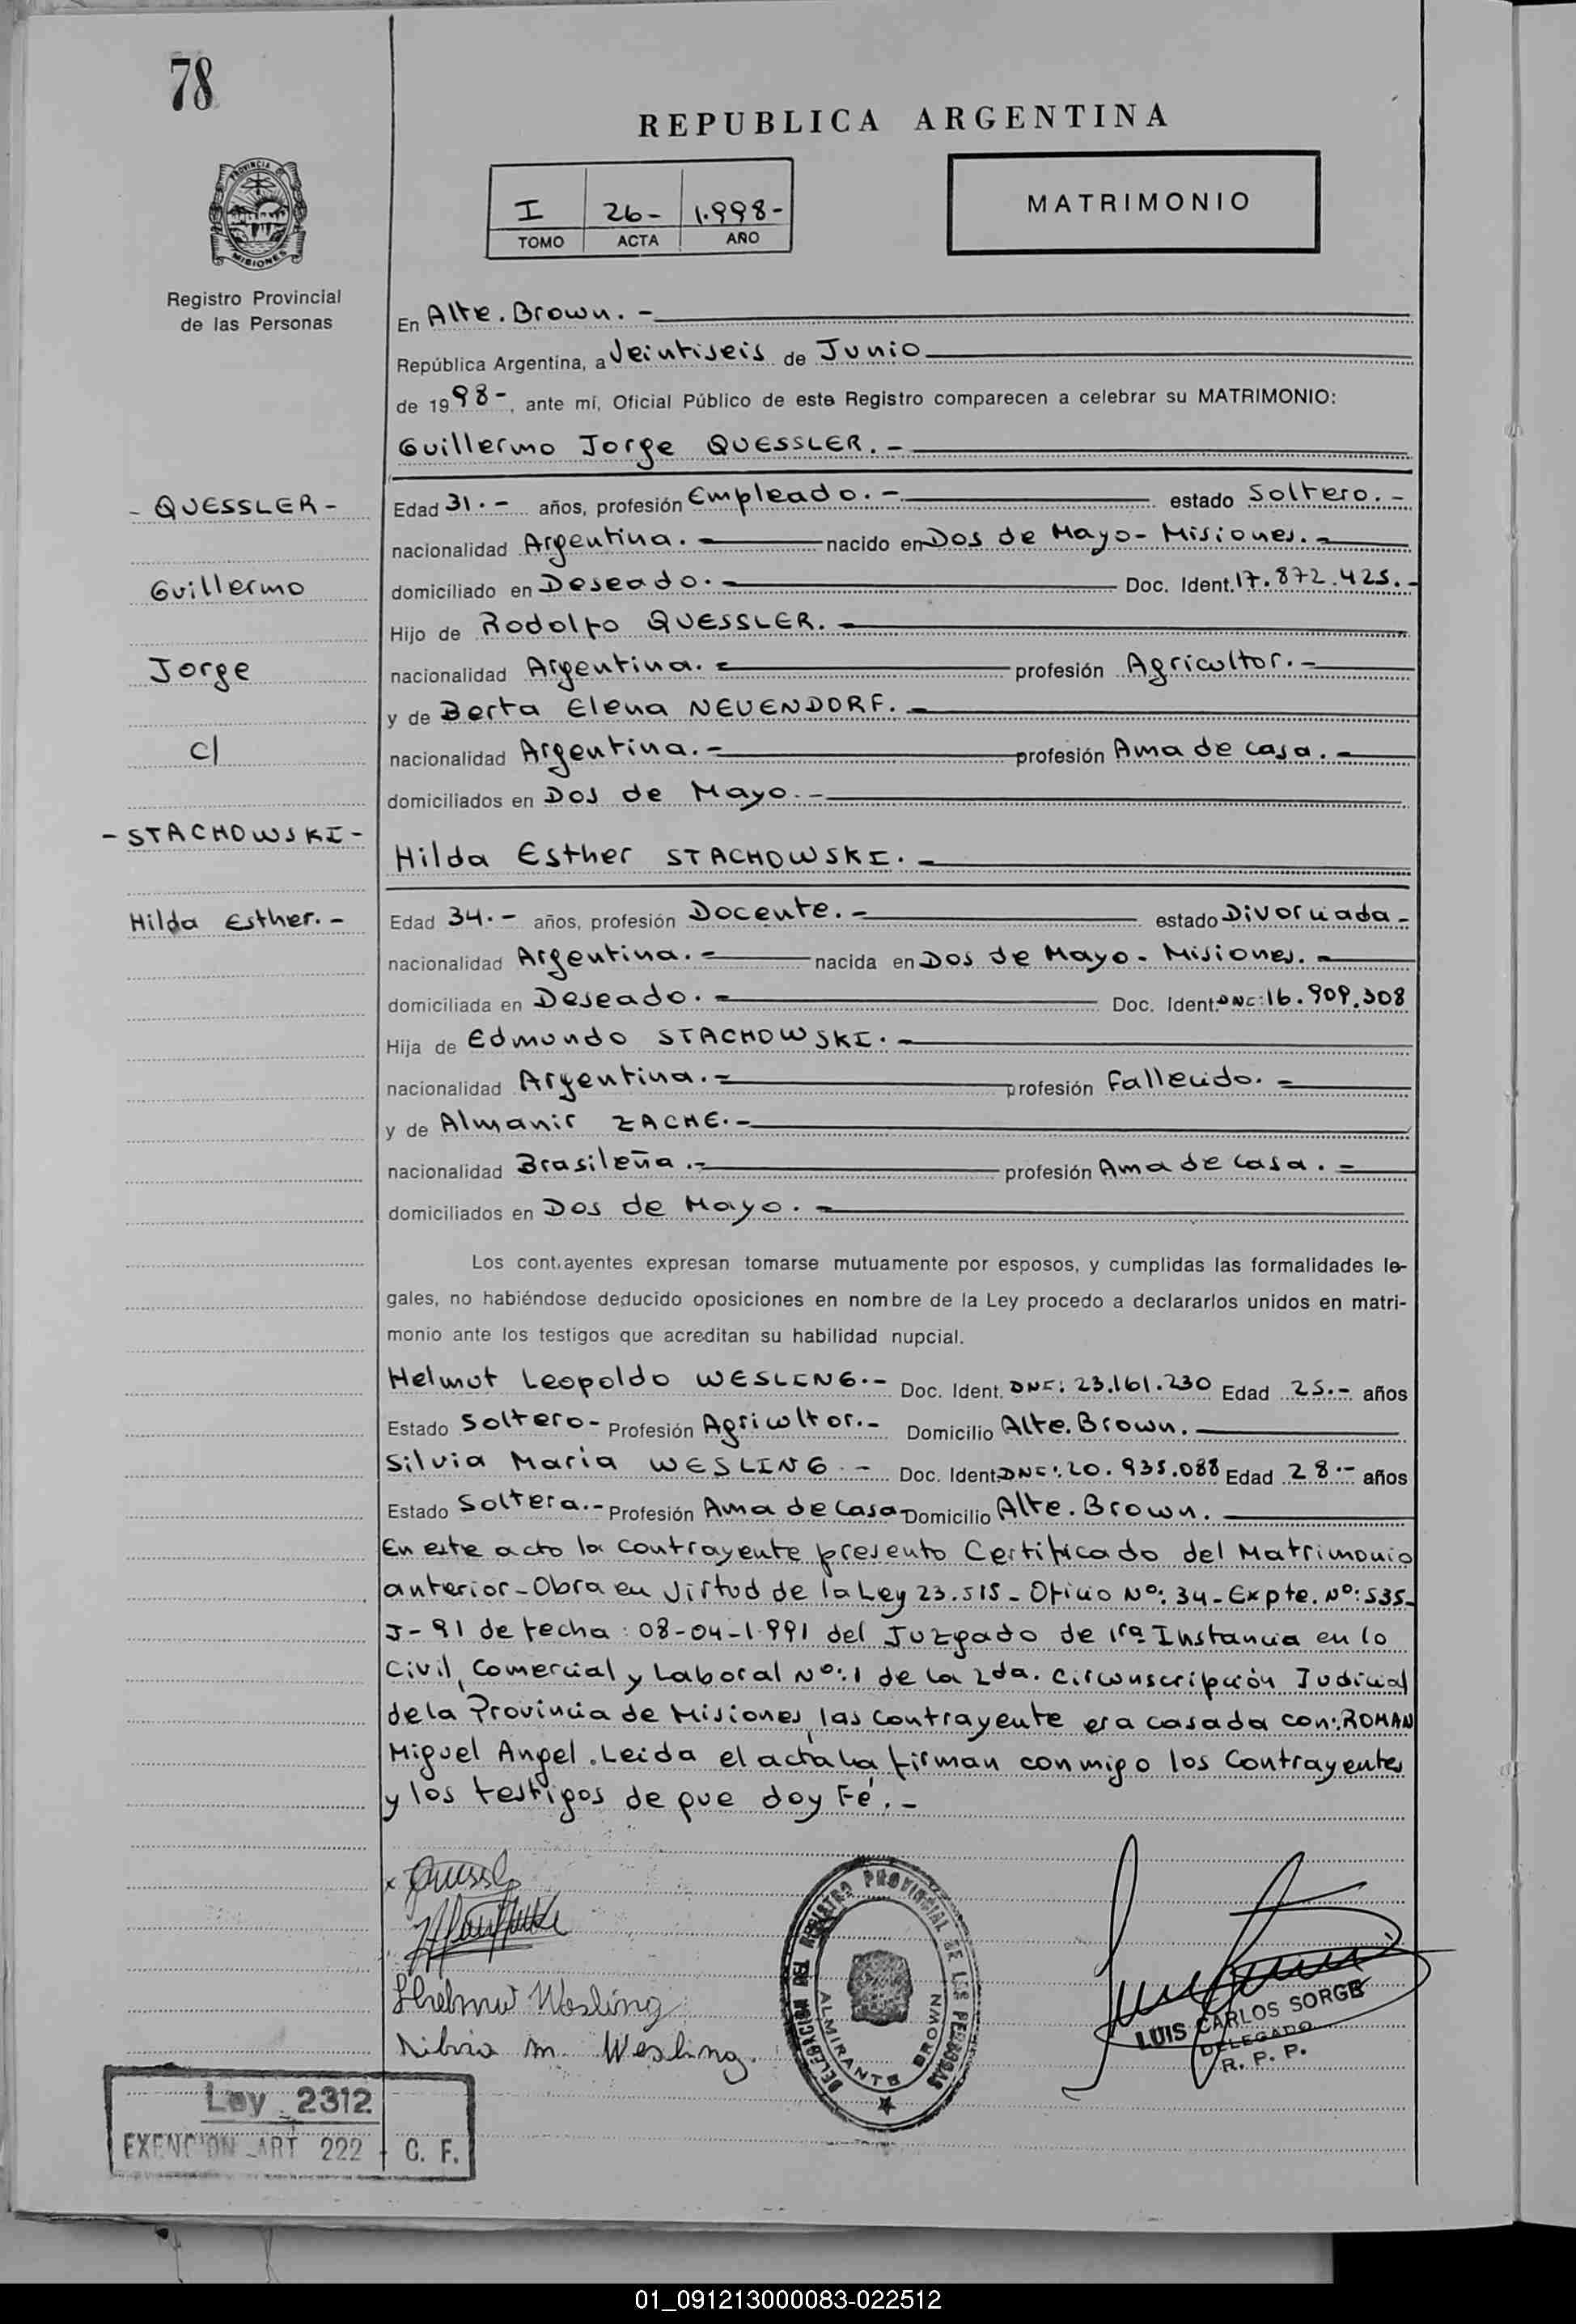 78
REPUBLICA ARGENTINA
PROVINCIA
MISIONES
I 26- 1.998-
TOMO ACTA AÑO
MATRIMONIO
Registro Provincial
de las Personas
En Alte. Brown. -
República Argentina, a Veintiseis de Junio
de 1998-, ante mí, Oficial Público de este Registro comparecen a celebrar su MATRIMONIO:
Guillermo Jorge QUESSLER. -
- QUESSLER -
Edad 31.- años, profesión Empleado. - estado Soltero. -
nacionalidad Argentina. - nacido en Dos de Mayo - Misiones. -
Guillermo
domiciliado en Deseado. - Doc. Ident. 17.872.425. -
Hijo de Rodolfo QUESSLER. -
Jorge
nacionalidad Argentina. - profesión Agricultor. -
y de Berta Elena NEUENDORF. -
c/
nacionalidad Argentina. - profesión Ama de casa. -
domiciliados en Dos de Mayo. -
- STACHOWSKI -
Hilda Esther STACHOWSKI. -
Hilda Esther. -
Edad 34. - años, profesión Docente. - estado Divorciada -
nacionalidad Argentina. - nacida en Dos de Mayo - Misiones. -
domiciliada en Deseado. - Doc. Ident. DNI: 16.909.308
Hija de Edmundo STACHOWSKI. -
nacionalidad Argentina. - profesión Fallecido. -
y de Almanir ZACHE. -
nacionalidad Brasileña. - profesión Ama de casa. -
domiciliados en Dos de Mayo. -
Los contrayentes expresan tomarse mutuamente por esposos, y cumplidas las formalidades le-
gales, no habiéndose deducido oposiciones en nombre de la Ley procedo a declararlos unidos en matri-
monio ante los testigos que acreditan su habilidad nupcial.
Helmut Leopoldo WESLING. - Doc. Ident. DNI: 23.161.230 Edad 25. - años
Estado Soltero - Profesión Agricultor. - Domicilio Alte. Brown.
Silvia Maria WESLING - Doc. Ident. DNI: 20.935.088 Edad 28. - años
Estado Soltera. - Profesión Ama de casa - Domicilio Alte. Brown.
En este acto la contrayente presento Certificado del Matrimonio
anterior - Obra en Virtud de la Ley 23.515 - Oficio Nº: 34 - Expte. Nº: 535-
J - 91 de fecha: 08-04-1.991 del Juzgado de 1ra Instancia en lo
Civil, Comercial y Laboral Nº: 1 de la 2da. Circunscripción Judicial
de la Provincia de Misiones, las contrayente era casada con: ROMAN
Miguel Angel. Leida el acta la firman conmigo los Contrayentes
y los testigos de que doy Fé. -
Helmut Wesling
Silvia M. Wesling.
DELEGACION DEL REGISTRO PROVINCIAL DE LAS PERSONAS
ALMIRANTE BROWN
LUIS CARLOS SORGE
DELEGADO
R. P. P.
Ley 2312
EXENCION ART 222 - C. F.
01_091213000083-022512